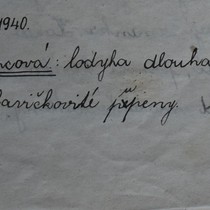 1940.
ncová: lodyha dlouha
lavičkovité pupeny.